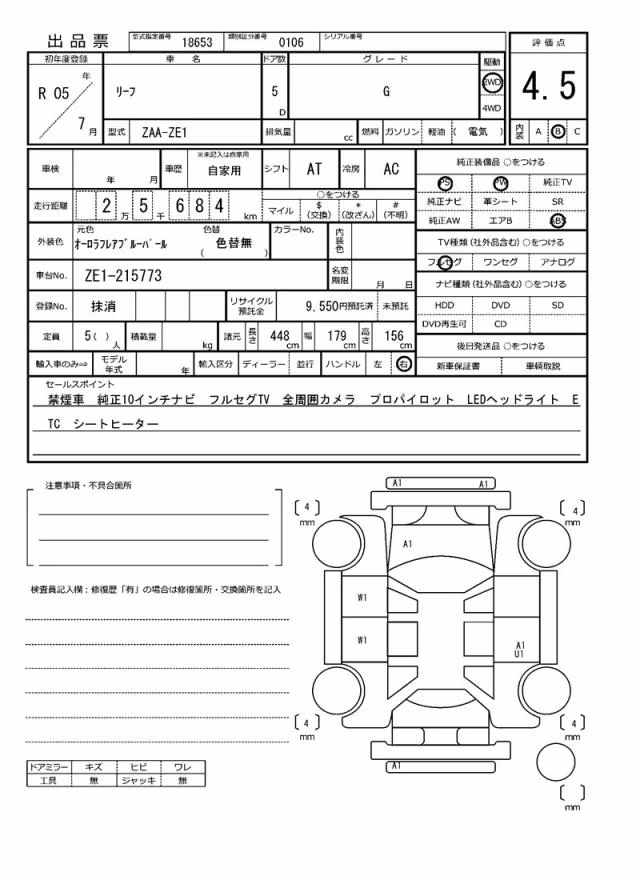 出品票 型式指定番号 18653 類別区分番号 0106 シリアル番号
初年度登録 車名 ドア数 グレード 駆動 評価点
R 05 年 7 月 リーフ 5 D G 2WD 4WD 4.5
型式 ZAA-ZE1 排気量 cc 燃料 ガソリン 軽油 ( 電気 ) 内装 A B C
車検 年 月 車歴 ※未記入は自家用 自家用 シフト AT 冷房 AC 純正装備品 ○をつける
PS PW 純正TV
走行距離 2 万 5 千 6 8 4 km ○をつける 純正ナビ 革シート SR
マイル $(交換) *(改ざん) #(不明) 純正AW エアB ABS
外装色 元色 オーロラフレアブルーパール 色替 ( 色替無 ) カラーNo. 内装色 TV種類(社外品含む)○をつける
フルセグ ワンセグ アナログ
車台No. ZE1-215773 名変期限 月 日 ナビ種類(社外品含む)○をつける
登録No. 抹消 リサイクル預託金 9,550円預託済 未預託 HDD DVD SD
DVD再生可 CD
定員 5( ) 人 積載量 kg 諸元 長さ 448 cm 幅 179 cm 高さ 156 cm 後日発送品 ○をつける
輸入車のみ⇒ モデル年式 年 輸入区分 ディーラー 並行 ハンドル 左 右 新車保証書 車輌取説
セールスポイント
禁煙車 純正10インチナビ フルセグTV 全周囲カメラ プロパイロット LEDヘッドライト E
TC シートヒーター
注意事項・不具合箇所
A1 A1
4 mm 4 mm
A1
検査員記入欄：修復歴「有」の場合は修復箇所・交換箇所を記入
W1
W1 A1
U1
4 mm 4 mm
A1
ドアミラー キズ ヒビ ワレ
工具 無 ジャッキ 無
mm